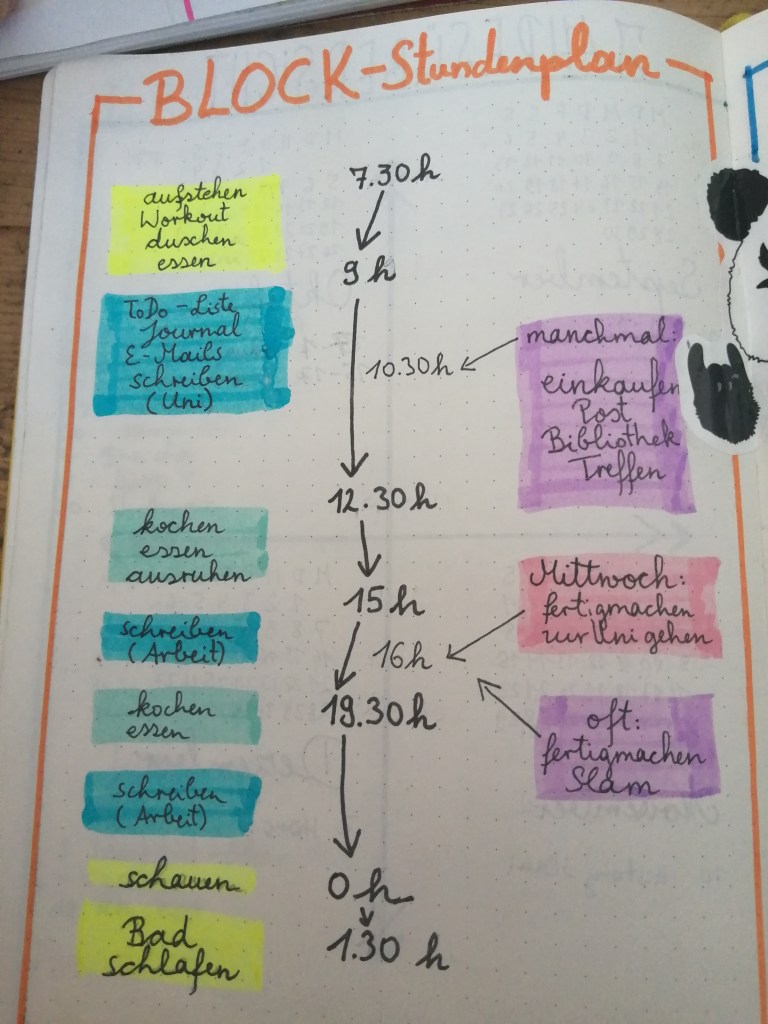 BLOCK-Stundenplan
7.30 h
aufstehen
Workout
duschen
essen
9 h
ToDo-Liste
Journal
E-Mails
schreiben
(Uni)
10.30 h
manchmal:
einkaufen
Post
Bibliothek
Treffen
12.30 h
kochen
essen
ausruhen
15 h
Mittwoch:
fertigmachen
zur Uni gehen
schreiben
(Arbeit)
16 h
19.30 h
kochen
essen
oft:
fertigmachen
Slam
schreiben
(Arbeit)
schauen
0 h
1.30 h
Bad
schlafen